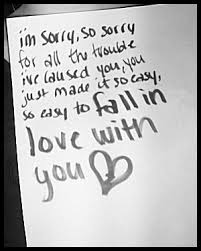 i'm sorry, so sorry
for all the trouble
i've caused you, you
just made it so easy,
so easy to fall in
love with
you